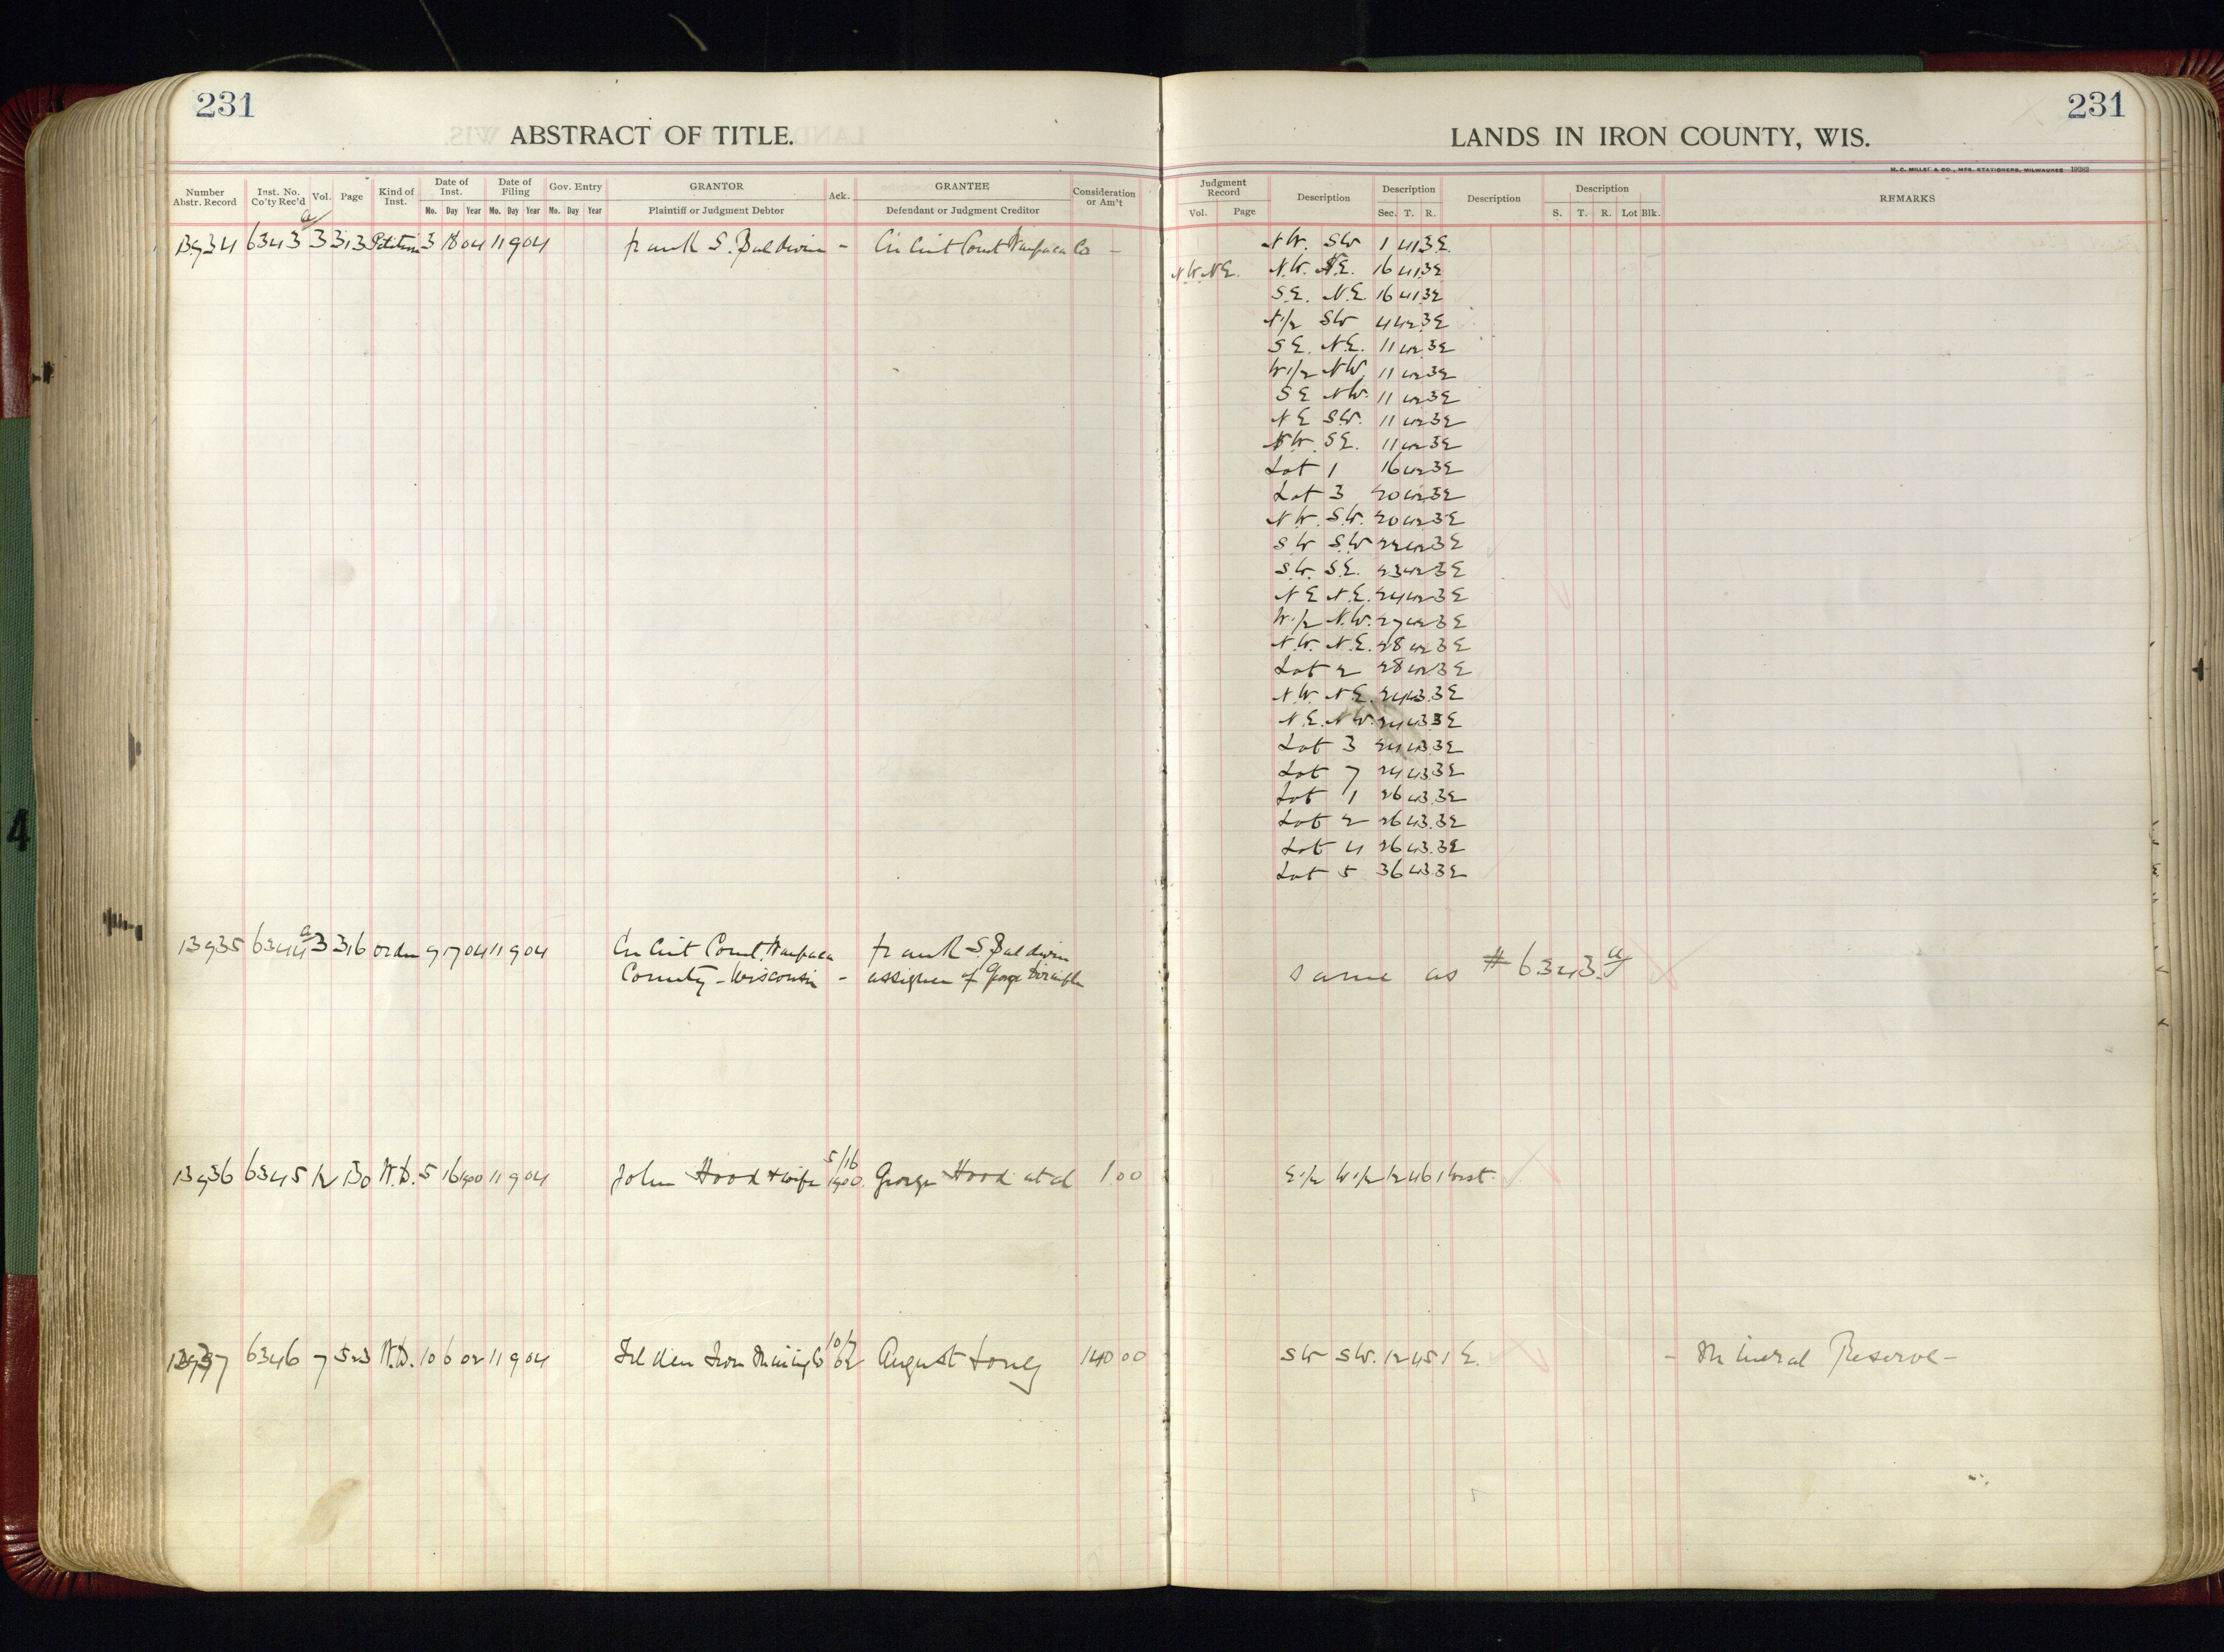 231
ABSTRACT OF TITLE.
231
LANDS IN IRON COUNTY, WIS.
H. C. MILLER & CO., MFG. STATIONERS, MILWAUKEE 19382
Number Abstr. Record | Inst. No. Co'ty Rec'd | Vol. | Page | Kind of Inst. | Date of Inst. Mo. Day Year | Date of Filing Mo. Day Year | Gov. Entry Mo. Day Year | GRANTOR Plaintiff or Judgment Debtor | Ack. | GRANTEE Defendant or Judgment Creditor | Consideration or Am't
Judgment Record Vol. Page | Description | Description Sec. T. R. | Description | Description S. T. R. Lot Blk. | REMARKS
13934 6343 a 3 313 Petition 3 18 04 11 9 04 Frank S. Baldwin - Circuit Court Waupaca Co - N.W. SW 1 41 3E.
N.W. N.E. N.W. N.E. 16 41 3E
S.E. N.E. 16 41 3E
N1/2 SW 4 42 3E
SE. N.E. 11 42 3E
W1/2 NW 11 42 3E
SE NW. 11 42 3E
NE SW. 11 42 3E
NW. SE. 11 42 3E
Lot 1 16 42 3E
Lot 3 20 42 3E
N.W. S.W. 20 42 3E
SW S.W 22 42 3E
S.W. S.E. 23 42 3E
NE N.E. 24 42 3E
W1/2 N.W. 27 42 3E
N.W. N.E. 28 42 3E
Lot 2 28 42 3E
N.W. N.E. 24 43 3E
N.E. N.W. 24 43 3E
Lot 3 24 43 3E
Lot 7 24 43 3E
Lot 1 26 43 3E
Lot 2 26 43 3E
Lot 4 26 43 3E
Lot 5 36 43 3E
13935 6344 a 3 316 Order 9 17 04 11 9 04 Circuit Court, Waupaca Frank S. Baldwin
County - Wisconsin - assignee of George
same as # 6343 a
5/16
13936 6345 12 130 W.D. 5 16 1900 11 9 04 John Hood & wife 1900. George Hood et al 1.00 E1/2 W1/2 12 46 1 West.
10/7
13937 6346 7 523 W.D. 10 6 02 11 9 04 Iron Mining Co 02 August Long 140 00 SW SW. 12 45 1 E. - Mineral Reserve -
4